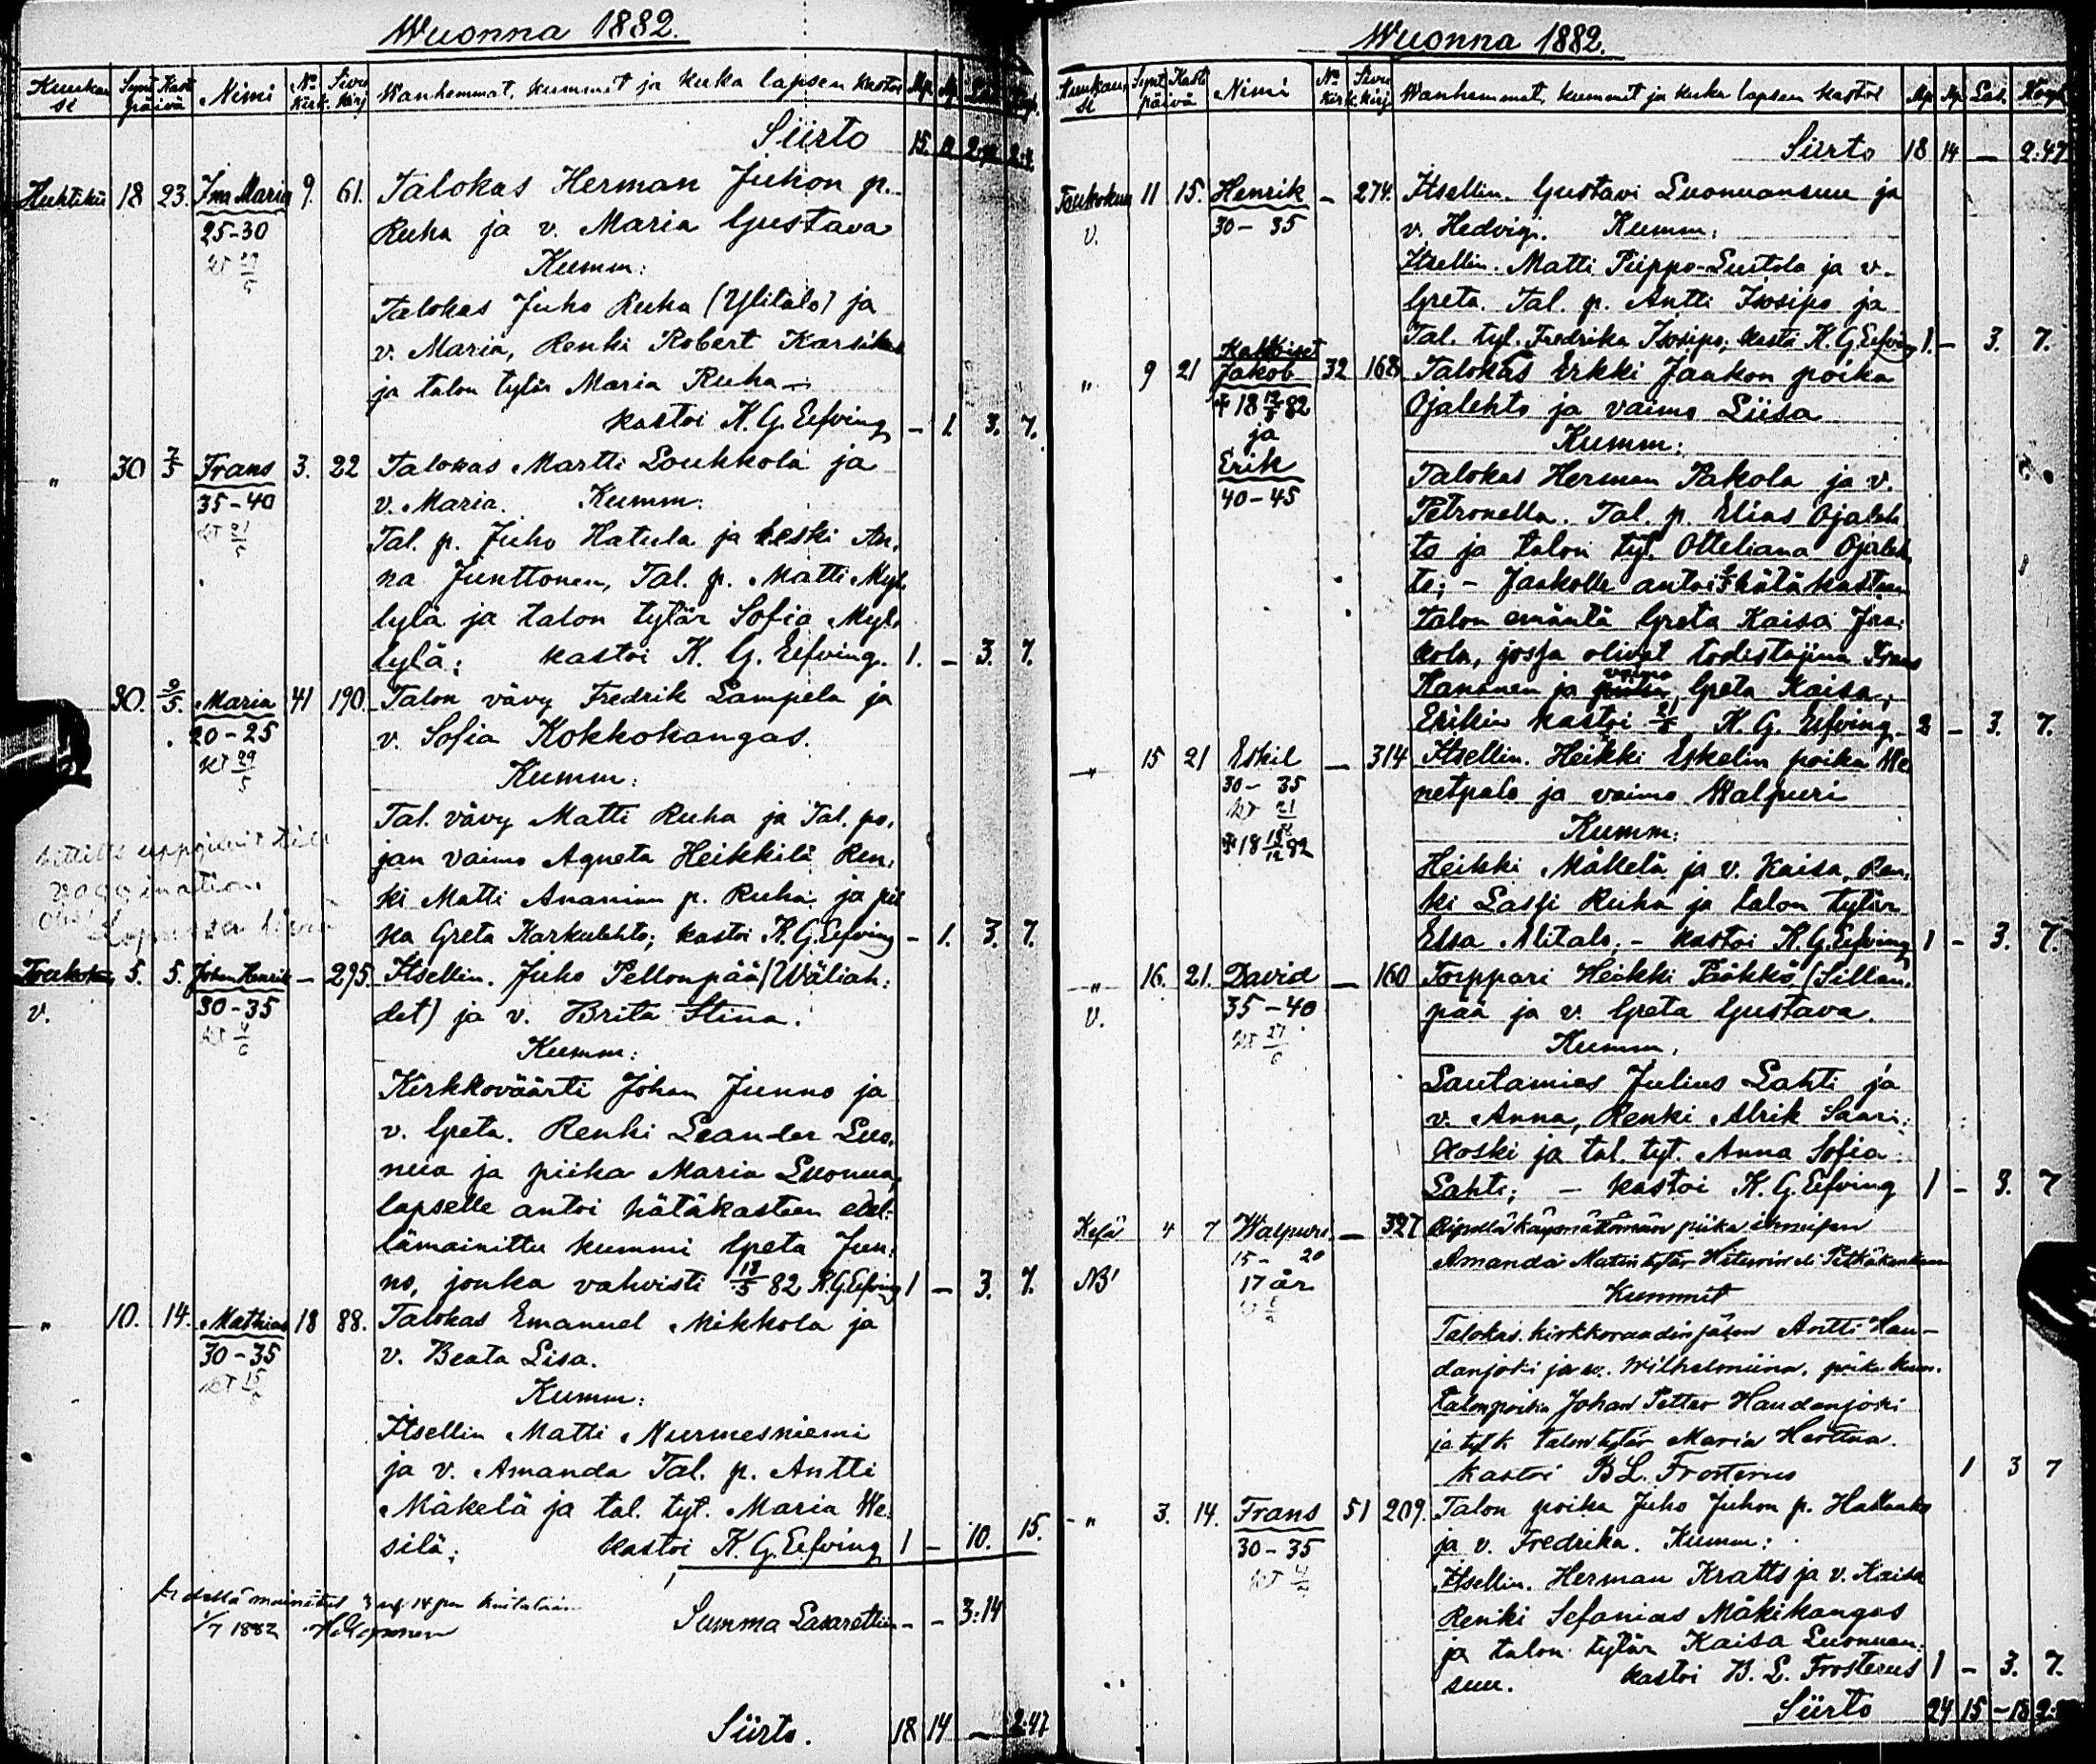 Wuonna 1882.
Kuukausi Synt. Kast. päivä Nimi No kirk. Sivu kirj Wanhemmat, kummit ja kuka lapsen kastoi Mp. Np. Las.
Siirto 15.
Huhtiku 18 23. Ina Maria 9. 61. Talokas Herman Juhon p.
25-30 Ruha ja v. Maria Gustava
Kumm:
Talokas Juho Ruha (Ylitalo) ja
v. Maria, Renki Robert Karsikas
ja talon tytär Maria Ruha -
kastoi K. G. Eefving - 1. 3. 7.
" 30 7/5 Frans 3. 22 Talokas Martti Loukkola ja
35-40 v. Maria. Kumm:
Tal. p. Juho Hatula ja leski An,
na Junttonen, Tal. p. Matti Myl
lylä ja talon tytär Sofia Myl,
lylä; kastoi K. G. Eefving. 1. - 3. 7.
30. 9/5. Maria 41 190. Talon vävy Fredrik Lampela ja
20-25 v. Sofia Kokkokangas.
kt 29/5 Kumm:
Tal. vävy Matti Ruha ja Tal. po,
jan vaimo Agneta Heikkilä Ren,
ki Matti Ananian p. Ruha ja pii
ka Greta Karkulehto; kastoi K. G. Eefving - 1. 3. 7.
Toukokuu 5. 5. Johan Henrik - 295. Itsellin. Juho Pellonpää (Wäliah,
v. 30-35 det) ja v. Brita Stina.
Kumm:
Kirkkoväärti Johan Junno ja
v. Greta. Renki Leander Luo,
nua ja piika Maria Luonua,
lapselle antoi hätäkasteen edel,
lämainittu kummi Greta Jun,
no, jonka vahvisti 13/5 82 K. G. Eefving 1 - 3. 7.
" 10. 14. Mathias 18 88. Talokas Emanuel Mikkola ja
30-35 v. Beata Lisa.
Kumm:
Itsellin Matti Nurmesniemi
ja v. Amanda Tal. p. Antti
Mäkelä ja tal. tyt. Maria We,
silä; kastoi K. G. Eefving 1 - 10. 15.
1/7 1882
Summa Lasarettiin - - 3:14
Siirto. 18 14 - 2:47
Wuonna 1882.
Kuukausi Synt. Kast. päivä Nimi No kirk. Sivu kirj Wanhemmat, kummit ja kuka lapsen kastoi Mp. Np. Las.
Siirto 18 14 - 2:47
Toukokuu 11 15. Henrik - 274. Itsellin. Gustavi Luonuansuu ja
v. 30-35 v. Hedvig. Kumm:
Itsellin. Matti Piippo-Luitola ja v.
Greta. Tal. p. Antti Isosipo ja
Tal. tyt. Fredrika Isosipo; kastoi K. G. Eefving 1. - 3. 7.
" 9 21 Kaksoiset Jakob 32 168 Talokas Erkki Jaakon poika
82 Ojalehto ja vaimo Liisa
ja Kumm:
Erik Talokas Herman Pakola ja v.
40-45 Petronella. Tal. p. Elias Ojaleh
to ja talon tyt. Otteliana Ojaleh
to; - Jaakolle antoi hätäkasteen
talon emäntä Greta Kaisa Jaa,
kola, jossa olivat todistajina Frans
Kananen ja vaimo Greta Kaisa;
Erikin kastoi 21/5 K. G. Eefving. 2 - 3. 7.
15 21 Eskil - 314 Itsellin. Heikki Eskelin poika We
30-35 netpalo ja vaimo Walpuri
Kumm:
82 Heikki Mäkelä ja v. Kaisa, Ren,
ki Lassi Ruha ja talon tytär
Elsa Alitalo. - kastoi K. G. Eefving 1 - 3. 7.
" 16. 21. David - 160 Torppari Heikki Pääkkö (Sillan,
v. 35-40 pää ja v. Greta Gustava.
Kumm.
Lautamies Julius Lahti ja
v. Anna, Renki Alrik Saari,
koski ja tal. tyt. Anna Sofia
Lahti; - kastoi K. G. Eefving 1 - 3. 7
Kesä 4 7 Walpuri - 327 Ripillä käymättömän piika ihmisen
15-20 Amanda Matintytär
NB! 17 år Kummit
Talokas kirkkoraadin jäsen Antti Hau-
danjoki ja v. Wilhelmiina, poika kum.
talonpoika Johan Petter Haudanjoki
ja tyt. k. talon tytär Maria Herttua.
kastoi B L. Frosterus 1 3 7
" 3. 14. Frans 51 209. Talon poika Juho Juhon p. Hallanko
30-35 ja v. Fredrika. Kumm:
Itsellin. Herman Kratts ja v. Kaisa
Renki Sefanias Mäkikangas
ja talon tytär Kaisa Luonuan,
suu. kastoi B. L. Frosterus 1 - 3. 7.
Siirto 24 15 - 18